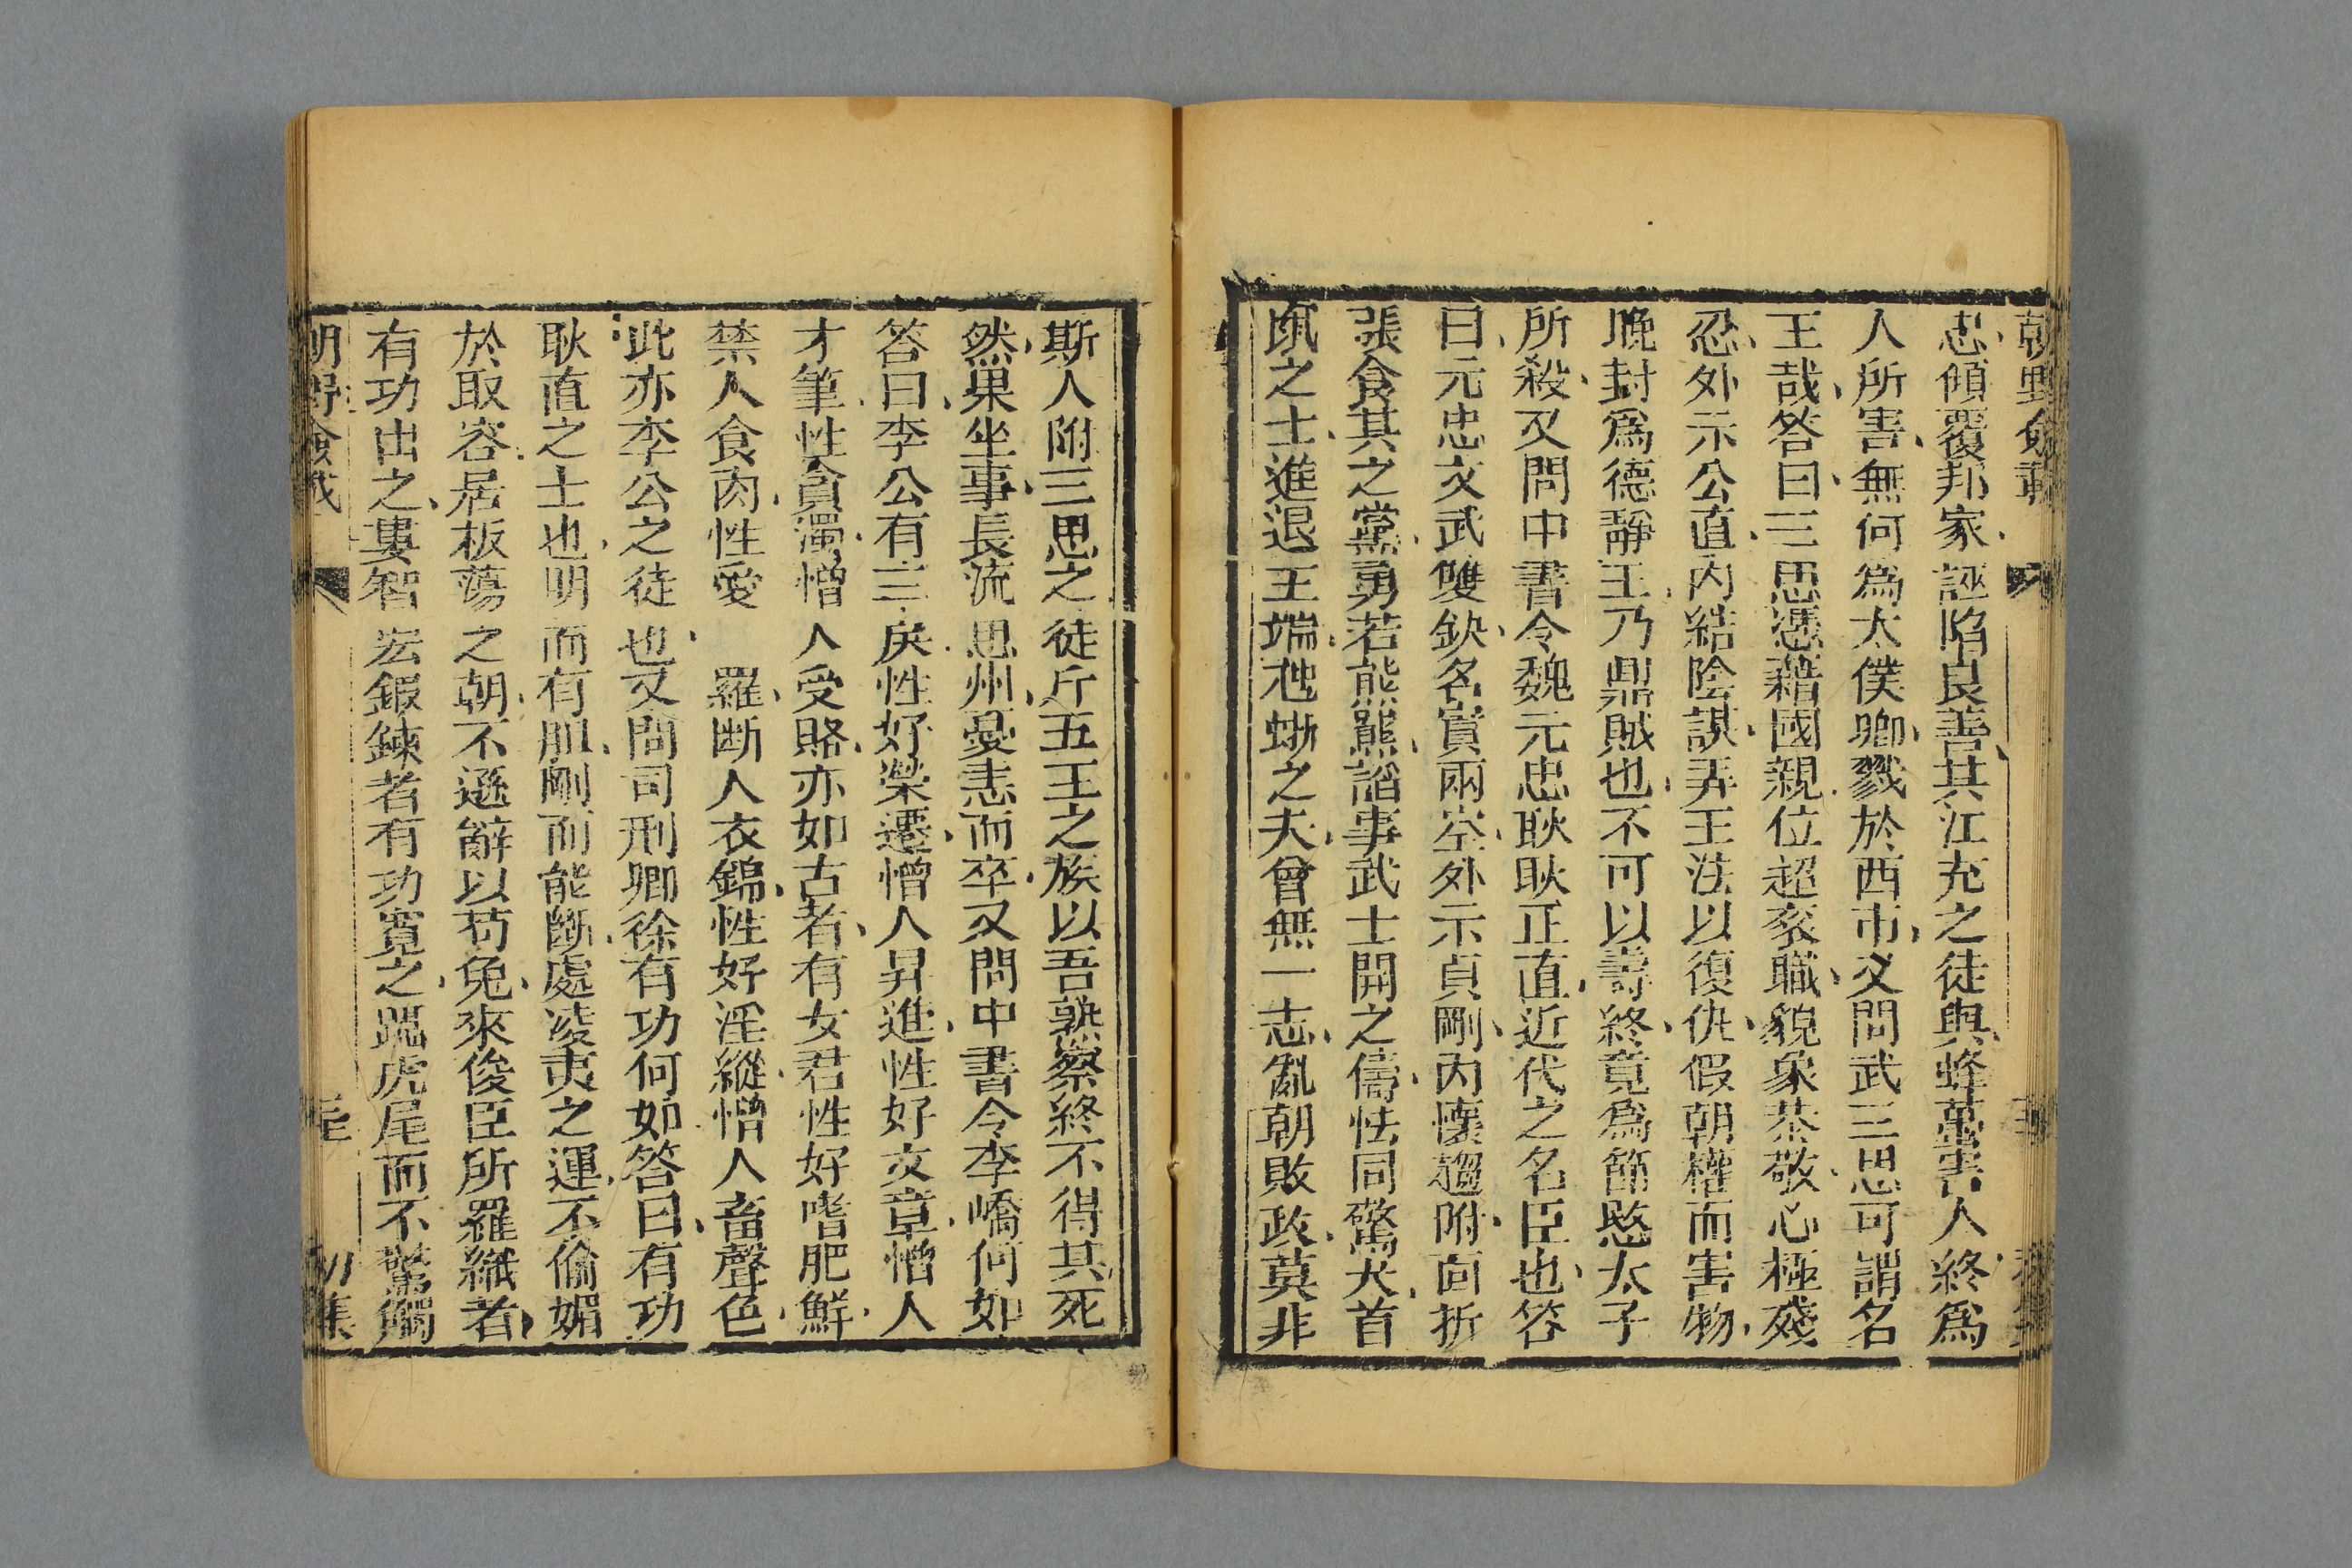 朝野僉載
忠傾覆邦家誣陷良善其江充之徒與蜂蠆害人終爲
人所害無何爲太僕卿戮於西市又問武三思可謂名
王哉答曰三思憑藉國親位超衮職貌象恭敬心極殘
忍外示公直内結陰謀弄王法以復仇假朝權而害物
晚封爲德靜王乃鼎賊也不可以壽終竟爲節愍太子
所殺又問中書令魏元忠耿耿正直近代之名臣也答
曰元忠文武雙缺名實兩空外示貞剛内懷趨附面折
張食其之黨勇若熊羆諂事武士開之儔怯同駑犬首
鼠之士進退王端虺蜥之夫曾無一志亂朝敗政莫非
斯人附三思之徒斥五王之族以吾熟察終不得其死
然果坐事長流思州憂恚而卒又問中書令李嶠何如
答曰李公有三戾性好榮遷憎人昇進性好文章憎人
才筆性貪濁憎人受賂亦如古者有女君性好嗜肥鮮
禁人食肉性愛 羅斷人衣錦性好淫縱憎人畜聲色
此亦李公之徒也又問司刑卿徐有功何如答曰有功
耿直之士也明而有胆剛而能斷處凌夷之運不偷媚
於取容居板蕩之朝不遜辭以苟免來俊臣所羅織者
有功出之婁智宏鍛鍊者有功寬之躡虎尾而不驚觸
朝野僉載